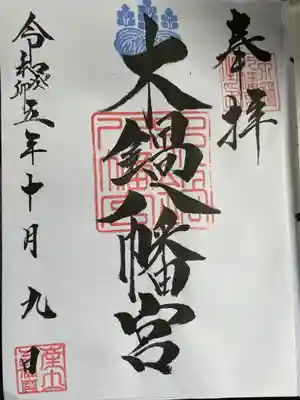 奉拝
木鍋八幡宮
令和癸卯五年十月九日